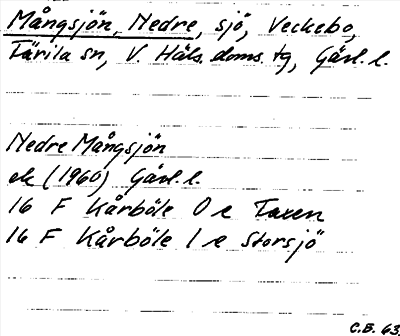 Mångsjön, Nedre, sjö, Veckebo,
Färila sn, V. Häls. doms. tg, Gävl. l.
Nedre Mångsjön
ek (1960) Gävl. l.
16 F Kårböle 0 e Taxen
16 F Kårböle 1 e Storsjö
C.B. 63